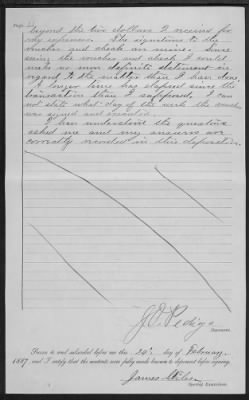 Page
beyond the two dollars I received for
my expenses. The signatures to the
voucher and check are mine. Since
seeing the voucher and check I could
make no more definite statement in
regard to the matter than I have done.
A longer time has elapsed since the
transaction than I supposed. I can
not state what day of the week the voucher
was signed and executed.
I have understood the questions
asked me and my answers are
correctly recorded in this deposition.
J. E. Pedigo
Deponent.
Sworn to and subscribed before me this 24" day of February
1887 and I certify that the contents were fully made known to deponent before signing.
James
Special Examiner.